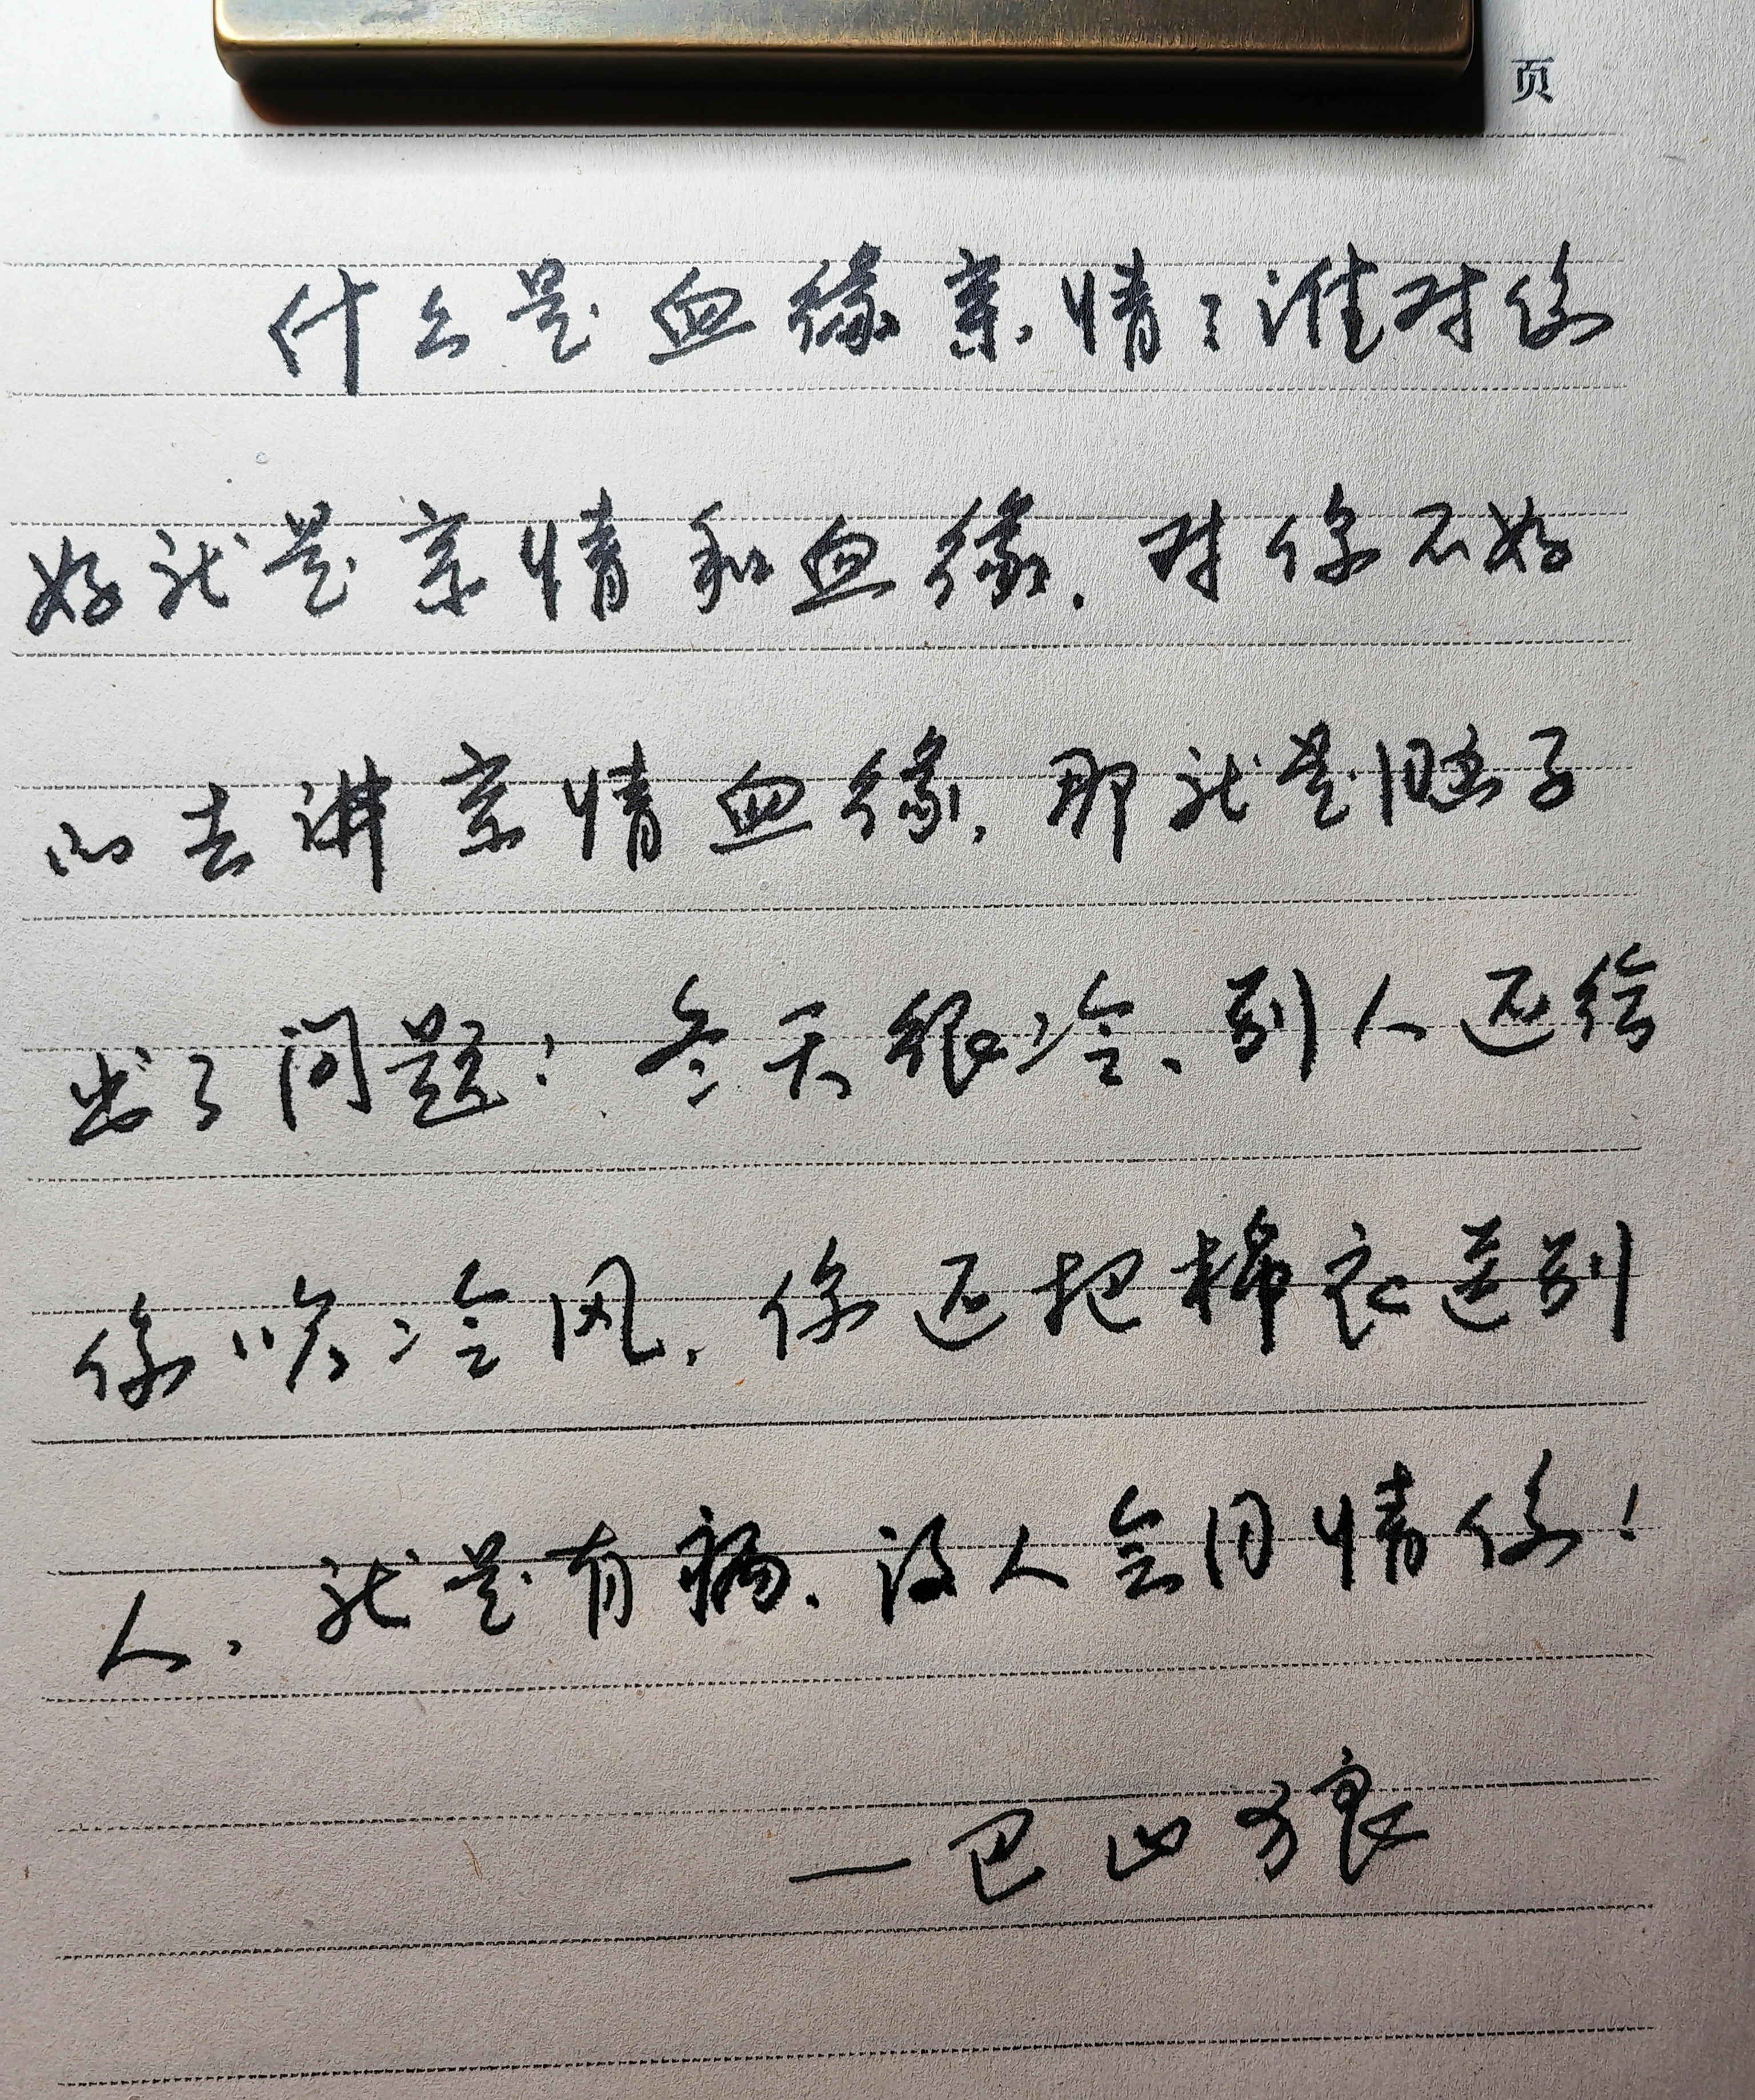 页
什么是血缘亲情？谁对你
好就是亲情和血缘，对你不好
的去讲亲情血缘，那就是脑子
出了问题！冬天很冷，别人还给
你吹冷风，你还把棉衣送别
人，就是有病，没人会同情你！
一巴山狼